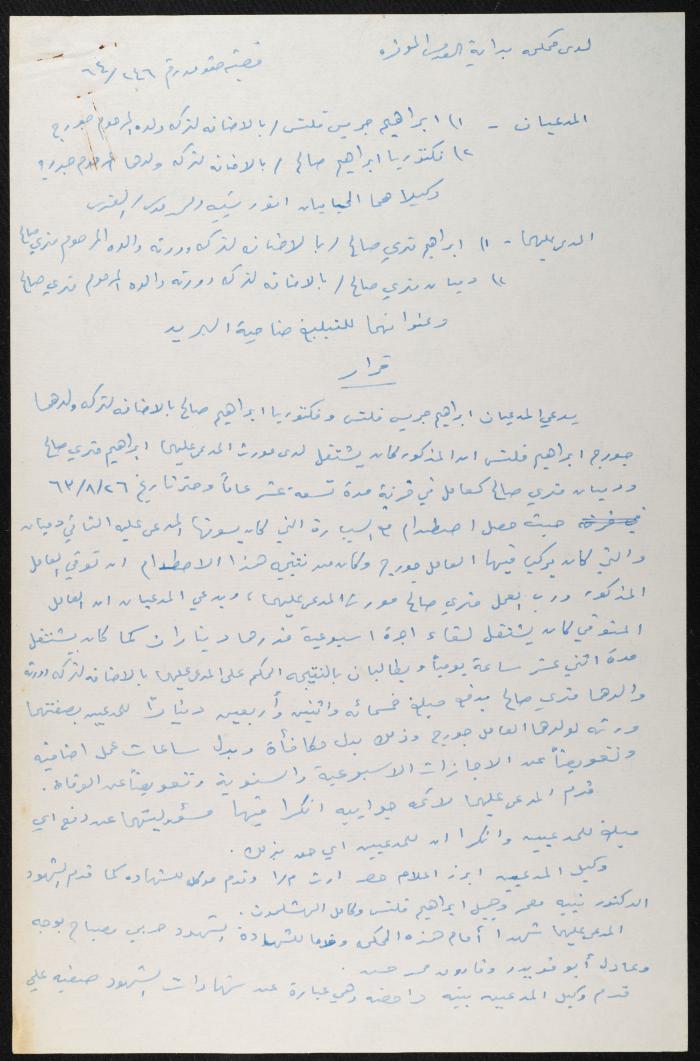 لدى محكمة بداية القدس الموقره
قضية حقوق رقم ٢٤٦/٦٤
المدعيان - ١) ابراهيم جريس فلتس / بالاضافه لتركه ولده المرحوم جورج
٢) فكتوريا ابراهيم صالح / بالاضافه لتركه ولدها المرحوم جورج
وكيلاهما المحاميان انور نسيبه / القدس
المدعى عليهما - ١) ابراهيم متري صالح / بالاضافه لتركه وورثه والده المرحوم متري صالح
٢) ديمان متري صالح / بالاضافه لتركه وورثه والده المرحوم متري صالح
وعنوانهما للتبليغ ضاحية البريد
قرار
يدعي المدعيان ابراهيم جريس فلتس وفكتوريا ابراهيم صالح بالاضافه لتركه ولدهما
جورج ابراهيم فلتس ان المذكور كان يشتغل لدى مورث المدعى عليهما ابراهيم متري صالح
وديمان متري صالح كعامل في فرنه مدة تسعة عشر عاماً وحتى تاريخ ٢٦/٨/٦٣
حيث حصل اصطدام مع السيارة التي كان يسوقها المدعى عليه الثاني ديمان
والتي كان يركب فيها العامل جورج وكان من نتيجة هذا الاصطدام ان توفي العامل
المذكور ورب العمل متري صالح مورث المدعى عليهما، ويدعي المدعيان ان العامل
المتوفي كان يشتغل لقاء اجرة اسبوعية قدرها ديناران كما كان يشتغل
مدة اثني عشر ساعة يومياً ويطالبان بالنتيجه الحكم على المدعى عليهما بالاضافه لتركه وورثه
والدهما متري صالح بدفع مبلغ خمسمائه واثنين وأربعين ديناراً للمدعيين بصفتهما
ورثه لولدهما العامل جورج وذلك بدل مكافأة وبدل ساعات عمل اضافيه
وتعويضاً عن الاجازات الاسبوعية والسنوية وتعويضاً عن الوفاة.
قدم المدعى عليهما لائحه جوابيه انكرا فيها مسؤوليتهما عن دفع اي
مبلغ للمدعيين وانكرا ان للمدعيين اي حق بذلك.
وكيل المدعيين ابرز اعلام حصر ارث م/١ وقدم موكله للشهاده كما قدم الشهود
الدكتور نبيه معمر وجميل ابراهيم فلتس وكامل الهشلمون.
المدعى عليهما شهدا أمام هذه المحكمه وقدما للشهادة الشهود حربي مصباح بوجه
وعادل أبو قويدر وفاروق محمد حسن
قدم وكيل المدعيين بينه داحضه وهي عبارة عن شهادات الشهود صبغيه علي